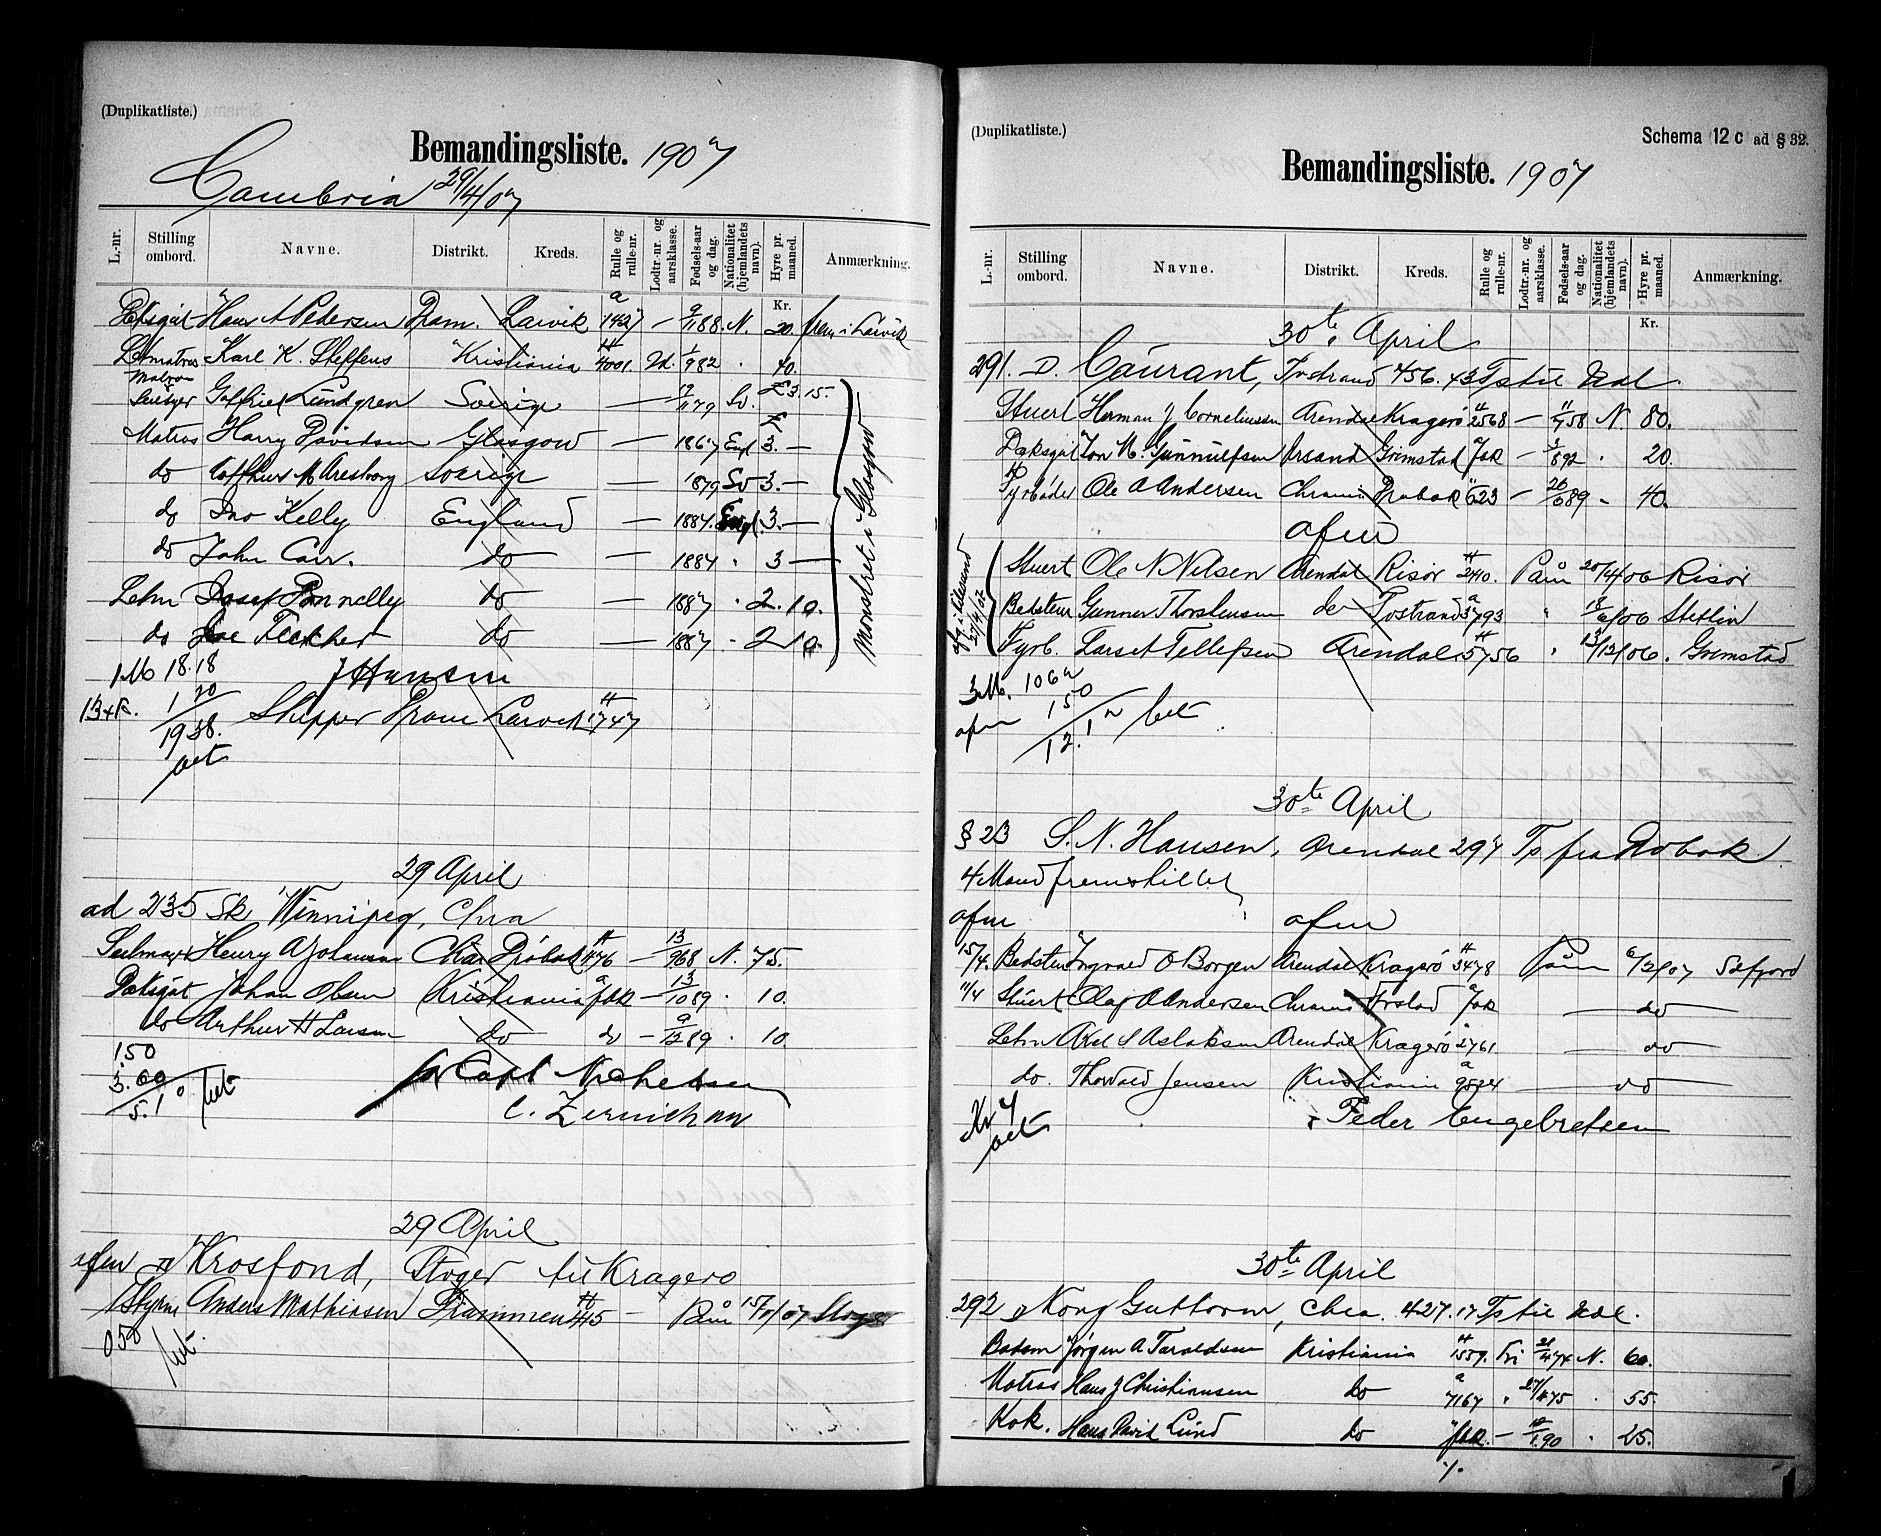 (Duplikatliste.)
Bemandingsliste. 1907
Cambria 29/4/07
L.-nr. Stilling ombord. Navne. Distrikt. Kreds. Rulle og rulle-nr. Lodtr.-nr. og aarsklasse. Fødsels-aar og dag. Nationalitet (hjemlandets navn). Hyre pr. maaned. Anmærkning.
Kr.
Hans A Pedersen Dram. Larvik 1427 — 88. N. 20. frem i Larvik
Letmatros Karl K. Steffens Kristiania 4001. 1/982 . 40.
Matros Lundgren Sverige — 79 Sv. £ 3.15.
Matros Harry Davidsen Glasgow — 1867 Engl 3. —
do Sverige 1879 Sv 3. —
do Jno Kelly England — 1884. Engl. 3. —
do John Carr. do — 1884 . 3 —
Letm Josef Donnelly do — 1887 . 2. 10.
do Joe Fletcher do — 1887 . 2 10.
Mønstret i Glasgow
1 M 18.18 J Hansen
1 20
19 38. Skipper Dram Larvik 1747
bet
29 April
ad 235 Sk Winnipeg, Chra
Seilmager Henry A Johansen Chra Drøbak 1176 — 13/968 N. 75.
Dæksgut Johan Olsen Kristiania fbk — 13/10 89 . 10.
do Arthur H Larsen do do — 9/12 89 . 10.
150
3.60
5.10 bet
for Capt Michelsen
C. Zernichow
29 April
afm D Krosfond, Skoger til Kragerø
1 Styrm Anders Mathiassen Drammen 445 — Paam 15/1/07 Skoger
050
bet.
(Duplikatliste.)
Schema 12 c ad § 32.
Bemandingsliste. 1907
L.-nr. Stilling ombord. Navne. Distrikt. Kreds. Rulle og rulle-nr. Lodtr.-nr. og aarsklasse. Fødsels-aar og dag. Nationalitet (hjemlandets navn). Hyre pr. maaned. Anmærkning.
Kr.
30te April
291. D. Courant, Tvedestrand 456.43 Ts til Udl.
Stuert Herman J Corneliussen Arendal Kragerø 2568 — 11/758 N 80.
Dæksgut Jon M. Gunnulfsen Krsand Grimstad fbk — 2/892 . 20.
Fyrbøder Ole A Andersen Chrania Drøbak 623 — 26/689 . 40.
afm
Stuert Ole N Nilsen Arendal Risør 2410. Paam 20/4/06 Risør
Bedstem Gunnar Thorstensen do Tvestrand 3793 " 18/6/06 Stettin
Fyrb. Lars A Tellefsen Arendal 5756 " 13/12/06. Grimstad
3 M. 10 62
afm 1 50
12.12 bet
30te April
§ 23 S. N. Hansen, Arendal 297 Ts fra Drøbak
4 Mand fremstillet
afm afm
15/4. Bedstem Ingvald O Borgen Arendal Kragerø 3478 Paam 6/2/07 Sefjord
11/4 Stuert Olaf A Andersen Chrania fbk — do —
Letm Axel S Aslaksen Arendal Kragerø 2761 — do —
do. Thorvald Jensen Kristiania 9524 — do —
Kr 4
bet
Peder Engebretsen
30te April
292 D Kong Guttorm, Chra. 427.17 Ts til Udl.
Badsm Jørgen A Taraldsen Kristiania 1559. Fri 21/474 N. 60.
Matros Hans J Christiansen do 7167 " 27/1 75 . 55.
Kok. Hans David Lund do fbk. — 10/1.90 . 25.